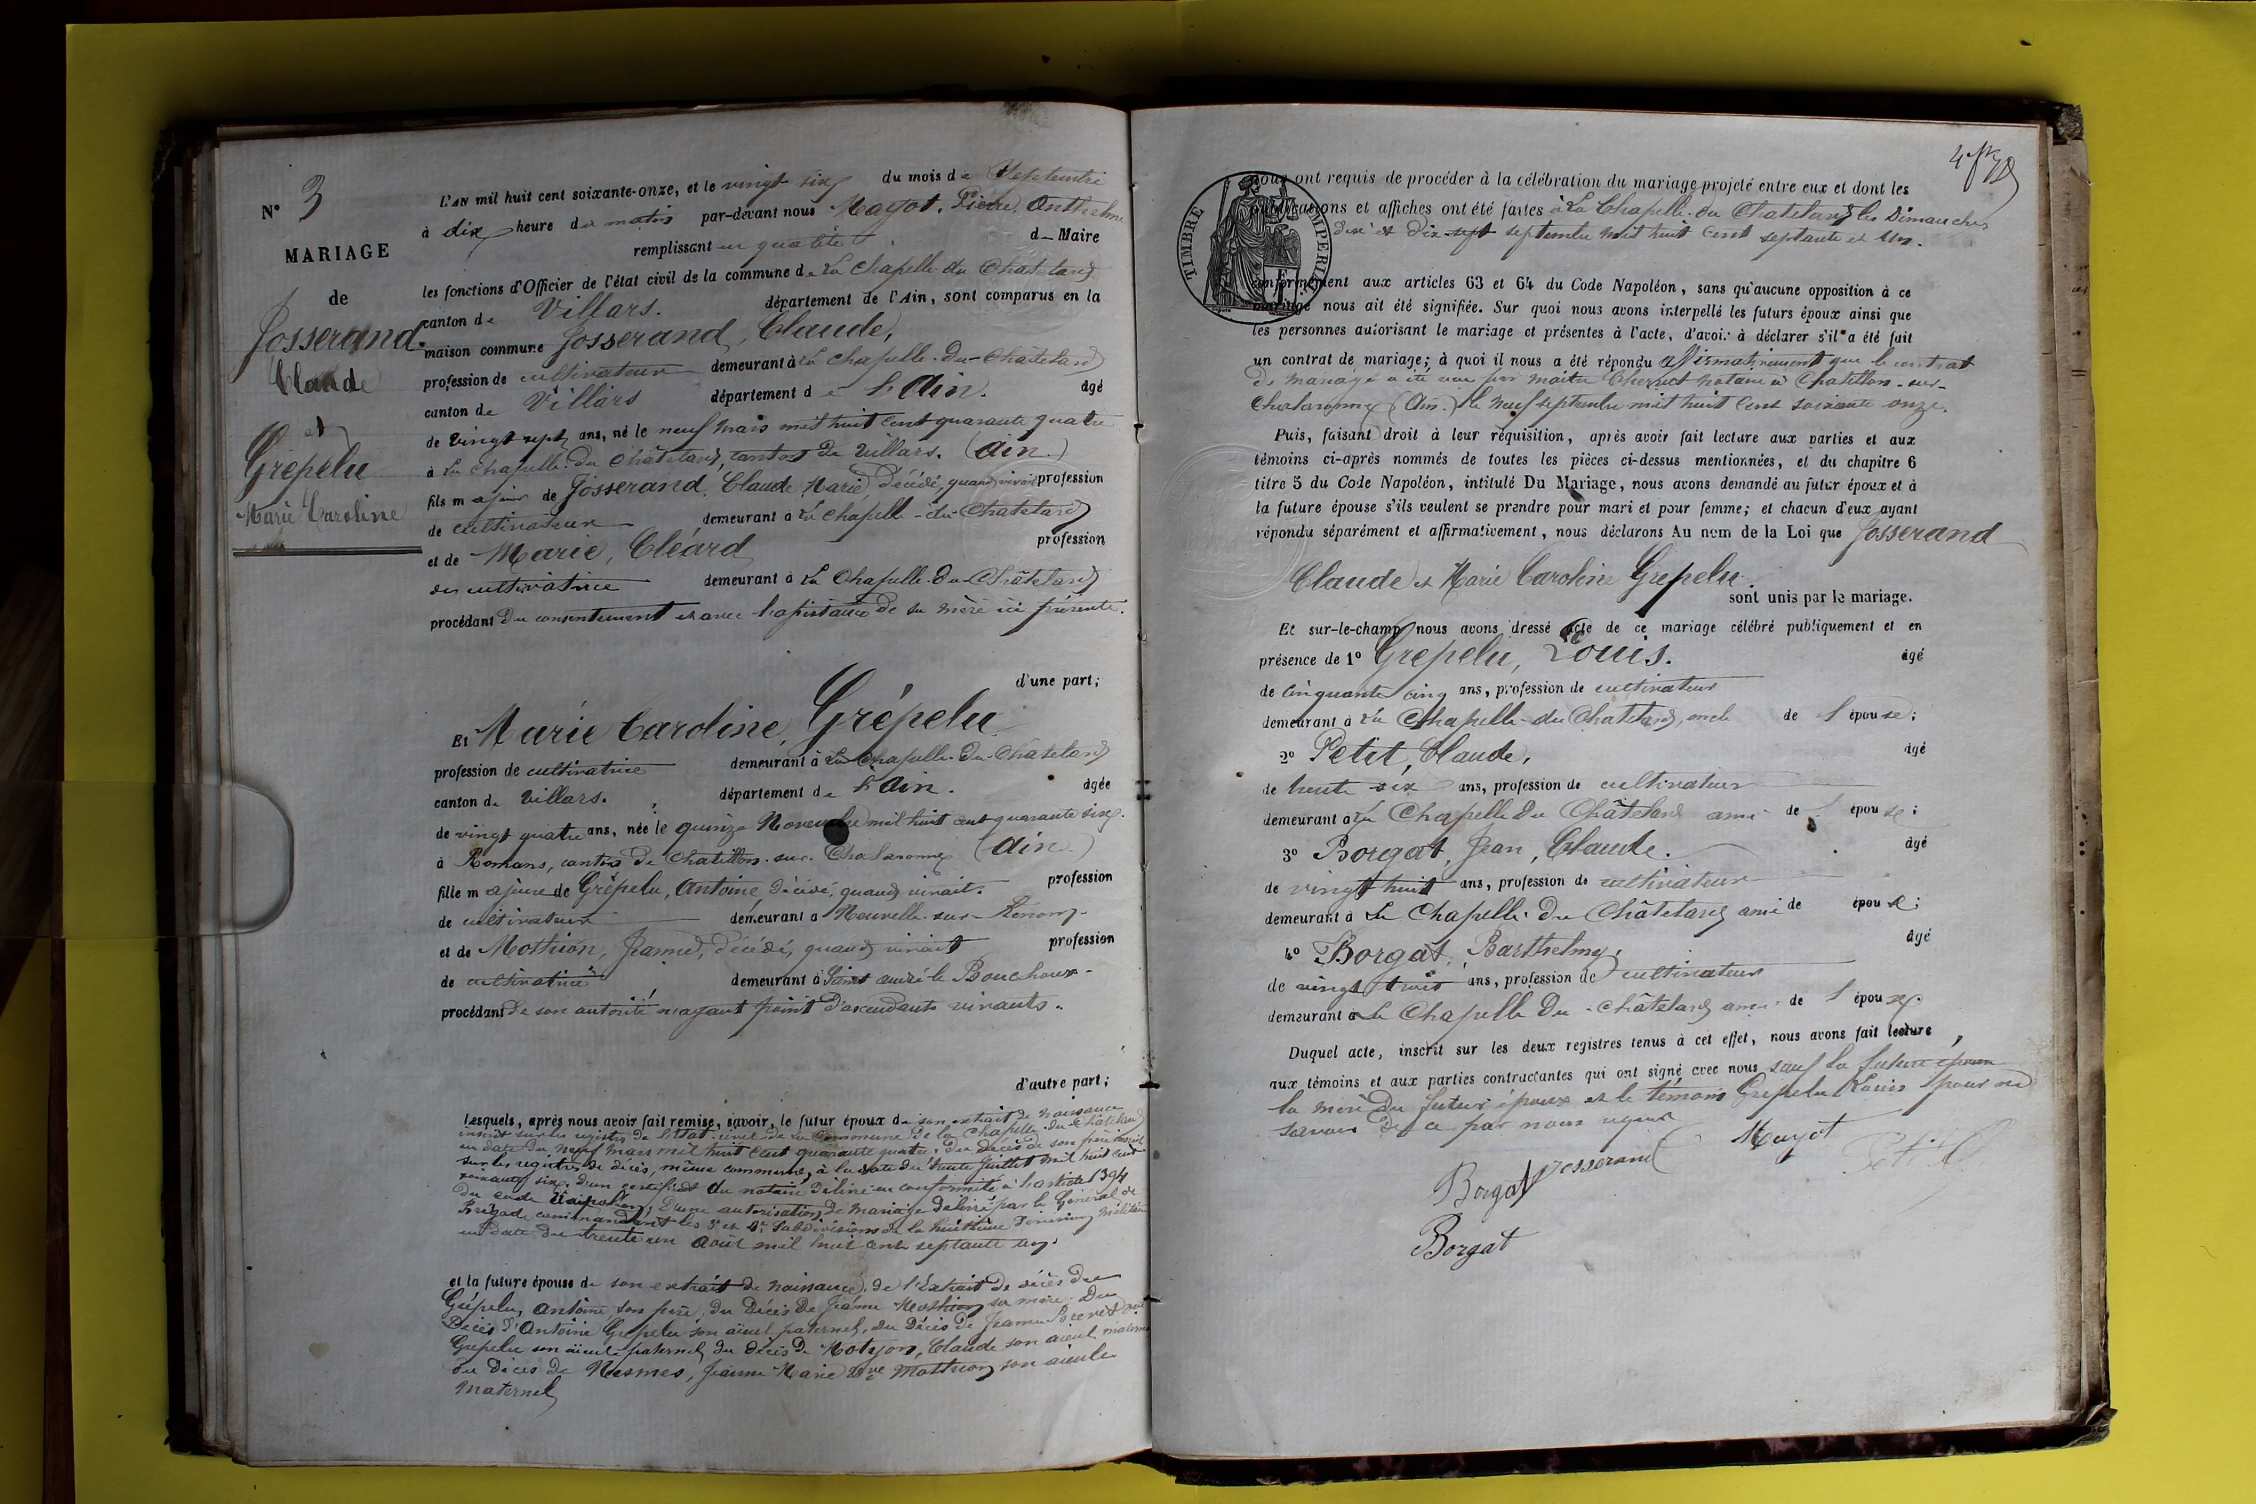 N° 3
MARIAGE
de
Josserand
Claude
et
Grépelu
Marie Caroline
L'AN mil huit cent soixante-onze, et le vingt six du mois de Septembre
à dix heure du matin par-devant nous Mayot, Pierre, Anthelme
remplissant en qualité d Maire
les fonctions d'Officier de l'état civil de la commune de La Chapelle du Châtelard
canton de Villars. département de l'Ain, sont comparus en la
maison commune Josserand, Claude,
profession de cultivateur demeurant à La Chapelle-du-Châtelard
canton de Villars département de L'Ain. âgé
de vingt sept ans, né le neuf Mars mil huit cent quarante quatre
à La Chapelle du Châtelard, canton de Villars. (Ain.)
fils majeur de Josserand, Claude Marie, décédé, quand vivait profession
de cultivateur demeurant à La Chapelle-du-Châtelard
et de Marie, Cléard profession
de cultivatrice demeurant à La Chapelle-du-Châtelard
procédant du consentement et avec l'assistance de sa mère ici présente.
d'une part;
Et Marie Caroline, Grépelu
profession de cultivatrice demeurant à La Chapelle-du-Châtelard
canton de Villars. département de L'Ain. âgée
de vingt quatre ans, née le quinze Novembre mil huit cent quarante six.
à Romans, canton de Chatillon-sur-Chalaronne (Ain)
fille majeure de Grépelu, Antoine, décédé, quand vivait. profession
de cultivateur demeurant à Neuville-sur-Renom
et de Mothion, Jeanne, décédé, quand vivait profession
de cultivatrice demeurant à Saint André le Bouchoux-
procédant de son autorité n'ayant point d'ascendants vivants.
d'autre part;
Lesquels, après nous avoir fait remise, savoir, le futur époux de son extrait de naissance
inscrit sur les registres de l'Etat-civil de la Commune de la Chapelle-du-Châtelard
en date du neuf mars mil huit cent quarante quatre; du décès de son père inscrit
sur les registres de décès, même commune, à la date du trente Juillet mil huit cent
soixante six; d'un certificat du notaire délivré en conformité à l'article 1394
du code Napoléon; d'une autorisation de mariage délivré par le Général de
Brigade commandant les 3e et 4e Subdivisions de la huitième Division militaire
en date du trente un Août mil huit cent septante un.
et la future épouse de son extrait de naissance, de l'Extrait de décès de
Grépelu, Antoine son père, du Décès de Jeanne Mothion sa mère. Du
Décès d'Antoine Grépelu son aïeul paternel, du Décès de Jeanne
Grepelu son aïeule paternel, du décès de Motyon, Claude son aïeul maternel
du décès de Mesmes, Jeanne Marie Vve Mothion son aieule
maternel
nous ont requis de procéder à la célébration du mariage projeté entre eux et dont les
publications et affiches ont été faites à La Chapelle-du Chatelard les Dimanches
dix et dix sept septembre mil huit cent septante et un.
conformément aux articles 63 et 64 du Code Napoléon, sans qu'aucune opposition à ce
mariage nous ait été signifiée. Sur quoi nous avons interpellé les futurs époux ainsi que
les personnes autorisant le mariage et présentes à l'acte, d'avoir à déclarer s'il a été fait
un contrat de mariage; à quoi il nous a été répondu affirmativement que le contrat
de mariage a été reçu par maître notaire à Chatillon-sur-
Chalaronne (Ain.) le neuf septembre mil huit cent soixante onze.
Puis, faisant droit à leur réquisition, après avoir fait lecture aux parties et aux
témoins ci-après nommés de toutes les pièces ci-dessus mentionnées, et du chapitre 6
titre 5 du Code Napoléon, intitulé Du Mariage, nous avons demandé au futur époux et à
la future épouse s'ils veulent se prendre pour mari et pour femme; et chacun d'eux ayant
répondu séparément et affirmativement, nous déclarons Au nom de la Loi que Josserand
Claude et Marie Caroline Grepelu.
sont unis par le mariage.
Et sur-le-champ nous avons dressé acte de ce mariage célébré publiquement et en
présence de 1° Grepelu, Louis. âgé
de cinquante cinq ans, profession de cultivateur
demeurant à La Chapelle-du Chatelard, oncle de l'épouse;
2° Petit, Claude, âgé
de trente six ans, profession de cultivateur
demeurant à La Chapelle du Châtelard ami de l'épouse;
3° Borgat, Jean, Claude. âgé
de vingt huit ans, profession de cultivateur
demeurant à La Chapelle-du Châtelard ami de épouse;
4° Borgat, Barthelmy, âgé
de vingt trois ans, profession de cultivateur
demeurant à La Chapelle du Châtelard ami de l'épouse.
Duquel acte, inscrit sur les deux registres tenus à cet effet, nous avons fait lecture
aux témoins et aux parties contractantes qui ont signé avec nous sauf la future épouse
la mère du futur époux et le témoin Grepelu Louis pour ne
savoir de ce par nous requis
Mayot
Josserand
Petit
Borgat
Borgat
TIMBRE IMPERIAL